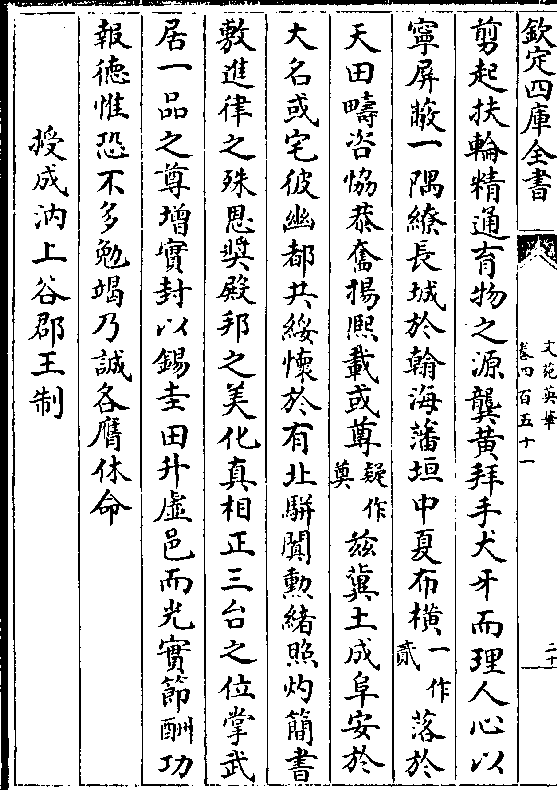 欽定四庫全書
文苑英華
卷四百五十一
二十
剪起扶輪精通育物之源龔黄拜手犬牙而理人心以
寧屏蔽一隅繚長城於翰海藩垣中夏布橫一作貳落於
天田疇咨恊恭奮揚熙載或尊疑作奠兹冀土成阜安於
大名或宅彼幽都共綏懷於有北駢闐勲緒照灼簡書
敷進律之殊恩奬殿邦之美化真相正三台之位掌武
居一品之尊增實封以錫圭田升虛邑而光實節酬功
報德惟恐不多勉竭乃誠各膺休命
授成汭上谷郡王制